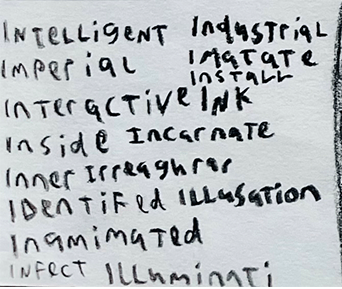 INTELLIGENT INdUSTRIAL
IMPERIAL IMATATE
INSTALL
INTERACTIVE INK
INSidE INCARNATE
INNER IRREAGHRAR
IDENTIFEd ILLUSATION
INAMIMATED
INFECT ILLUMINATI